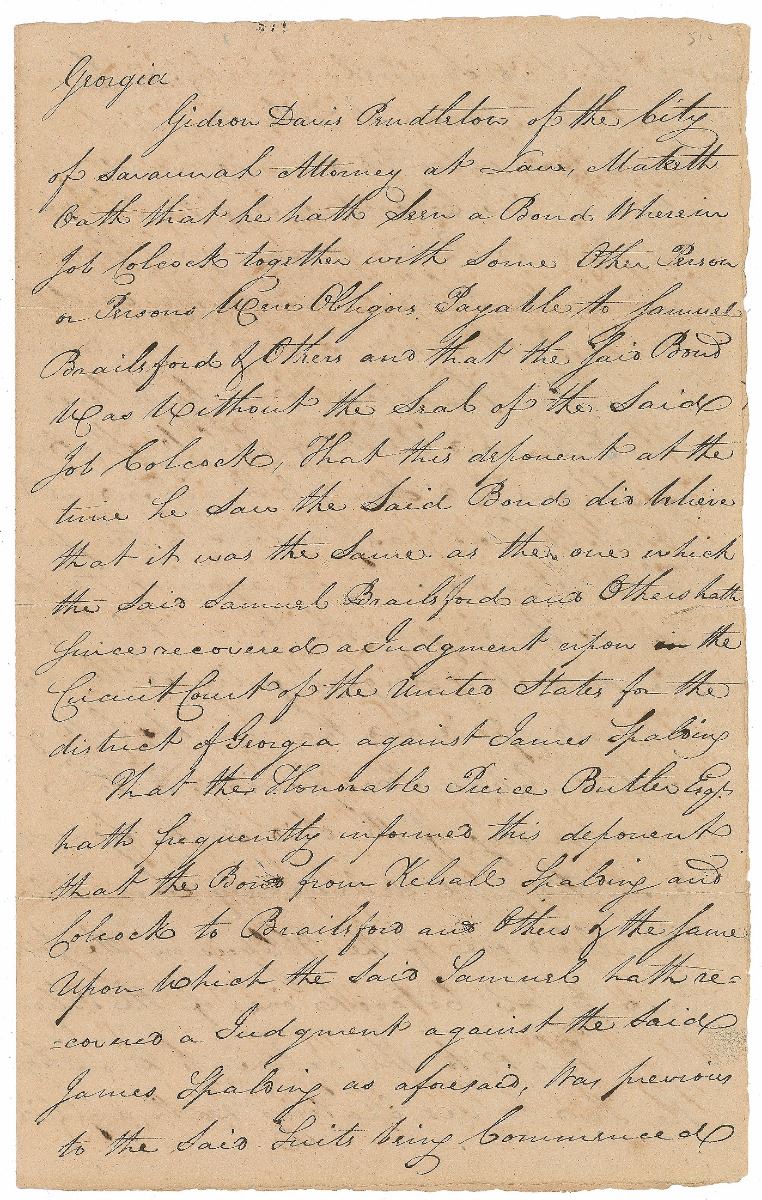 Georgia
Gideon Davis Pendleton of the City
of Savannah Attorney at Law, Maketh
Oath that he hath Seen a Bond Wherein
Job Colcock together with some Other Person
or Persons Were Obligors Payable to Samuel
Brailsford & Others and that the Said Bond
Was Without the Seal of the Said
Job Colcock, That this deponent at the
time he Saw the Said Bond did believe
that it was the Same as the one which
the Said Samuel Brailsford and Others hath
Since recovered a Judgment upon in the
Circuit Court of the United States for the
district of Georgia against James Spalding
That the Honorable Pierce Butler Esqr
hath frequently informed this deponent
that the Bond from Kelsall Spalding and
Colcock to Brailsford and Others & the Same
Upon Which the Said Samuel hath re=
=covered a Judgment against the Said
James Spalding as aforesaid, Was previous
to the Said Suits being Commenced